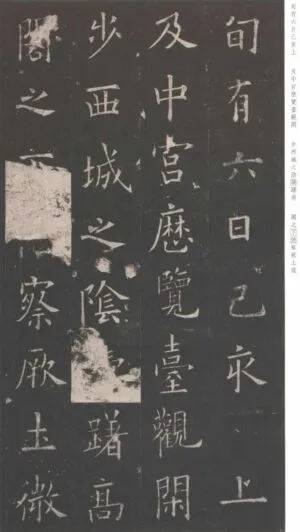 旬有六日己亥上 及中宮歷覽臺觀閑 步西城之陰躊躇高 閣之下俯察厥土微
旬有六日己亥上
及中宮歷覽臺觀閑
步西城之陰躇高
閣之察厥土微